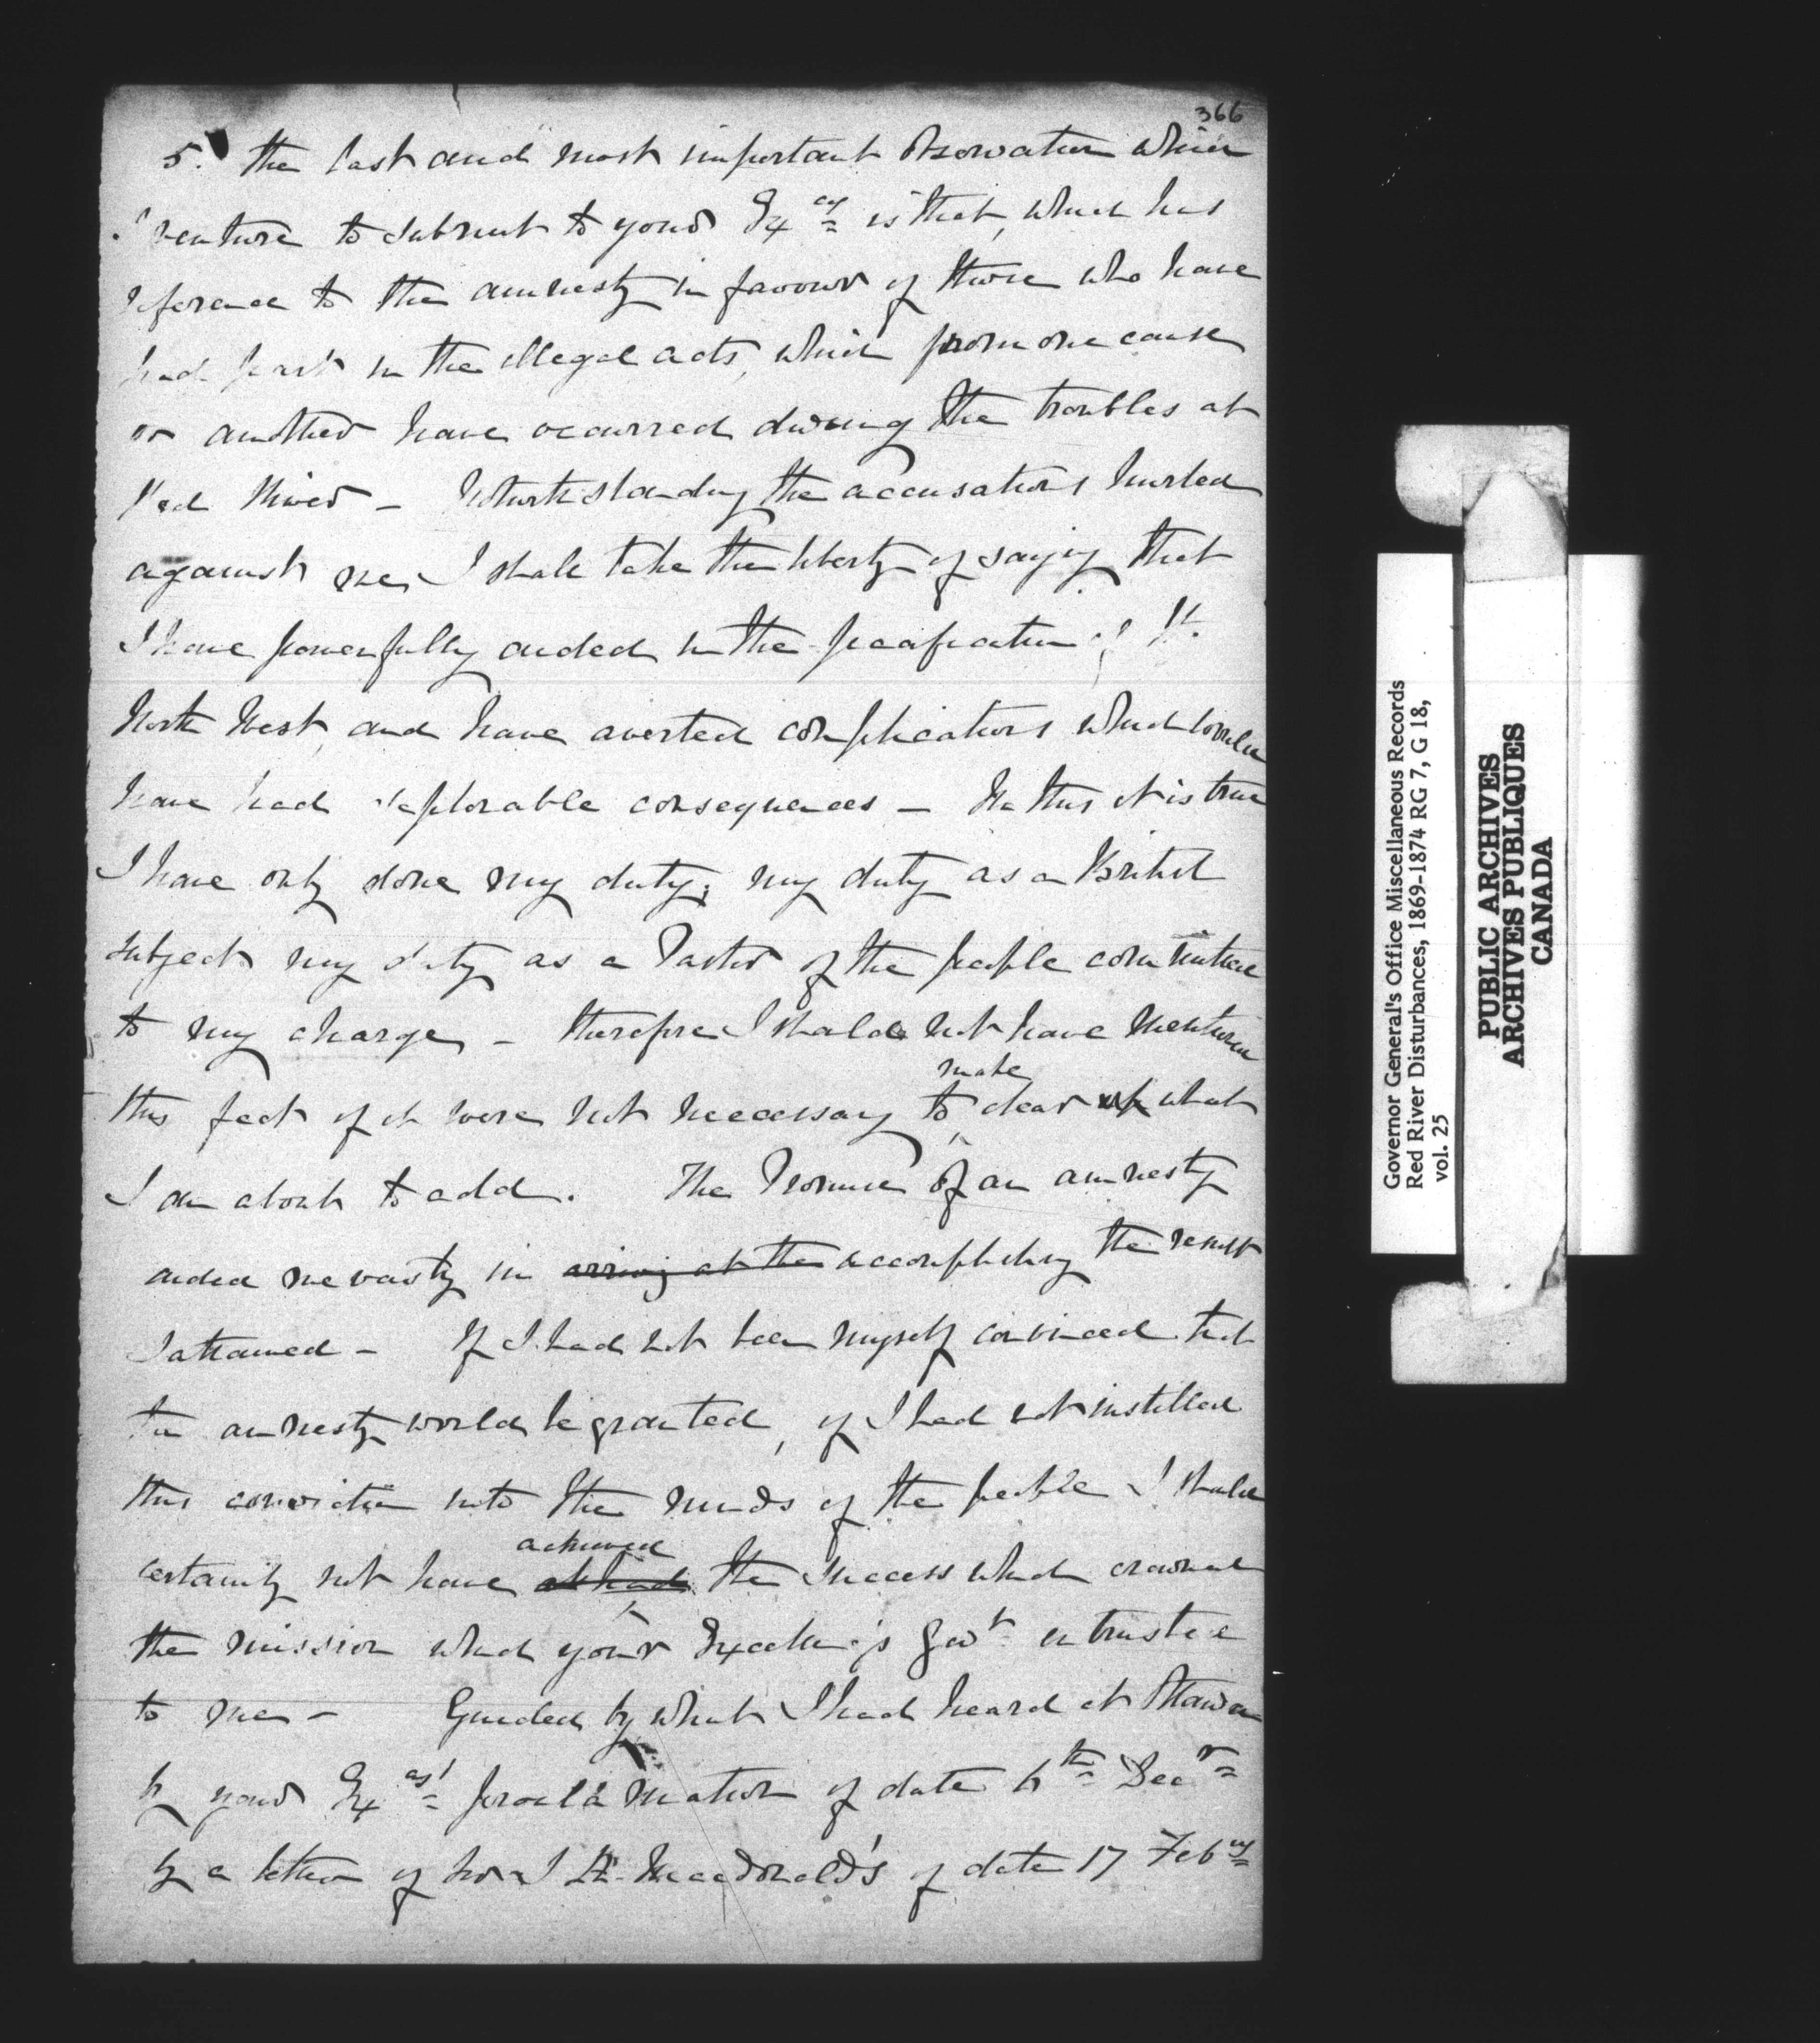 366
5. the last and most important Observation which
I venture to submit to your Excy is that, which has
reference to the amnesty in favour of those who have
had part in the illegal acts, which from one cause
or another have occurred during the troubles at
Red River - Notwithstanding the accusations hurled
against me, I shall take the liberty of saying that
I have powerfully aided in the pacification of the
North West, and have averted complications which would
have had deplorable consequences - In this it is true
I have only done my duty; my duty as a British
subject my duty as a Pastor of the people committed
to my charge - therefore I should not have mentioned
make
this fact if it were not necessary to clear up what
I am about to add. The Promise of an amnesty
aided me vastly in arriving at the accomplishing the result
I attained - If I had not been myself convinced that
the amnesty would be granted, if I had not instilled
this conviction into the minds of the people I should
achieved
certainly not have the success which crowned
the mission which your Excellency's Govt entrusted
to me - Guided by what I had heard at Ottawa
by your Excy's proclamation of date 6th Decr
by a letter of Sir J A Macdonald's of date 17 Feby
Governor General's Office Miscellaneous Records
Red River Disturbances, 1869-1874 RG 7, G 18,
vol. 25
PUBLIC ARCHIVES
ARCHIVES PUBLIQUES
CANADA